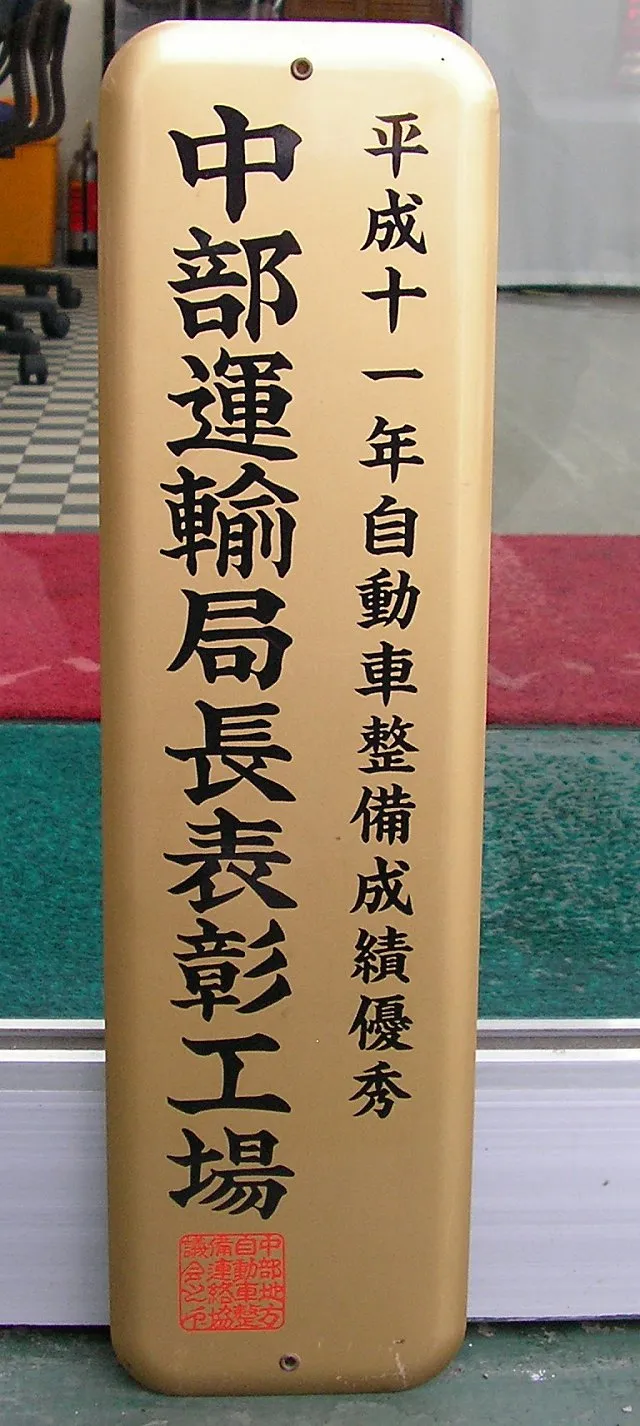 平成十一年自動車整備成績優秀
中部運輸局長表彰工場
中部地方
自動車整
備連絡協
議会之印